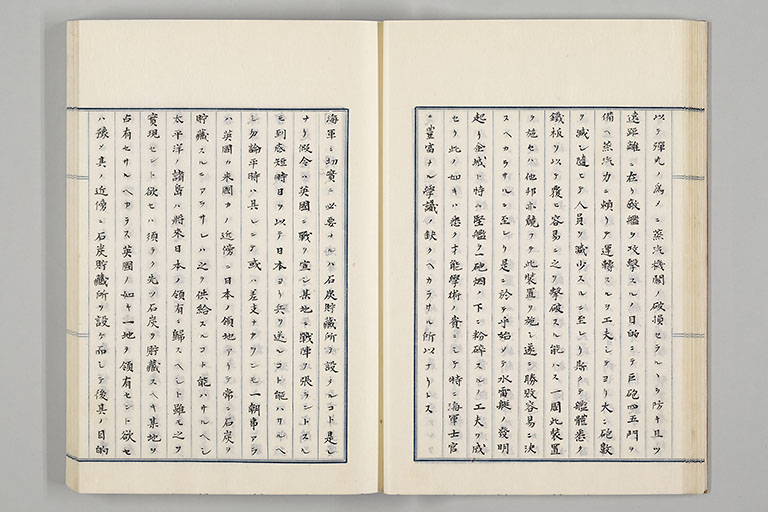 以テ彈丸ノ爲メニ蒸汽機關ノ破損セラヘヽヲ防キ且ツ
遠距離ニ在リ敵艦ヲ攻撃スルノ目的ニテ巨砲四五門ヲ
備ヘ蒸汽力ニ頼リテ運轉スルヲ工夫シテヨリ大ニ砲數
ヲ減シ隨ヒテ人員ヲ減少スルニ至レリ斯クテ艦體悉ク
鐵板ヲ以テ覆ヒ容易ニ之ヲ撃破スル能ハス一國此裝置
ヲ施セハ他邦亦競フテ此裝置ヲ施シ遂ニ勝敗容易ニ決
スヘカラサルニ至レリ是ニ於テ乎始メテ水雷艇ノ發明
起リ金城ト特ム堅艦ヲ一砲烟ノ下ニ粉碎スルノ工夫ヲ成
セリ此ノ如キハ悉ク才能學術ノ責ニシテ特ニ海軍士官
ニ豐富ナル學識ノ缺クヘカラサル所以ナリトス
海軍ニ切實ニ必要ナルハ石炭貯藏所ヲ設クルコト是レ
ナリ假令ハ英國ニ戰ヲ宣シ某地ニ戰陣ヲ張ラントスル
モ到底短時日ヲ以テ日本ヨリ兵ヲ送ルコト能ハサルヘ
シ勿論平時ハ具レニテ或ハ差支ナカランモ一朝事アラ
ハ英國カ米國カノ近傍ニ日本ノ領地アリテ常ニ石炭ヲ
貯藏スルニアラサレハ之ヲ供給スルコト能ハサルヘシ
太平洋ノ諸島ハ將來日本ノ領有ニ歸スヘシト雖ル之ヲ
實現セント欲セハ須ラク先ツ石炭ヲ貯藏スヘキ某地ヲ
占有セサルヘカラス英國ノ如キ一地ヲ領有セント欲セ
ハ豫メ其ノ近傍ニ石炭貯藏所ヲ設ケ而シテ後其ノ目的